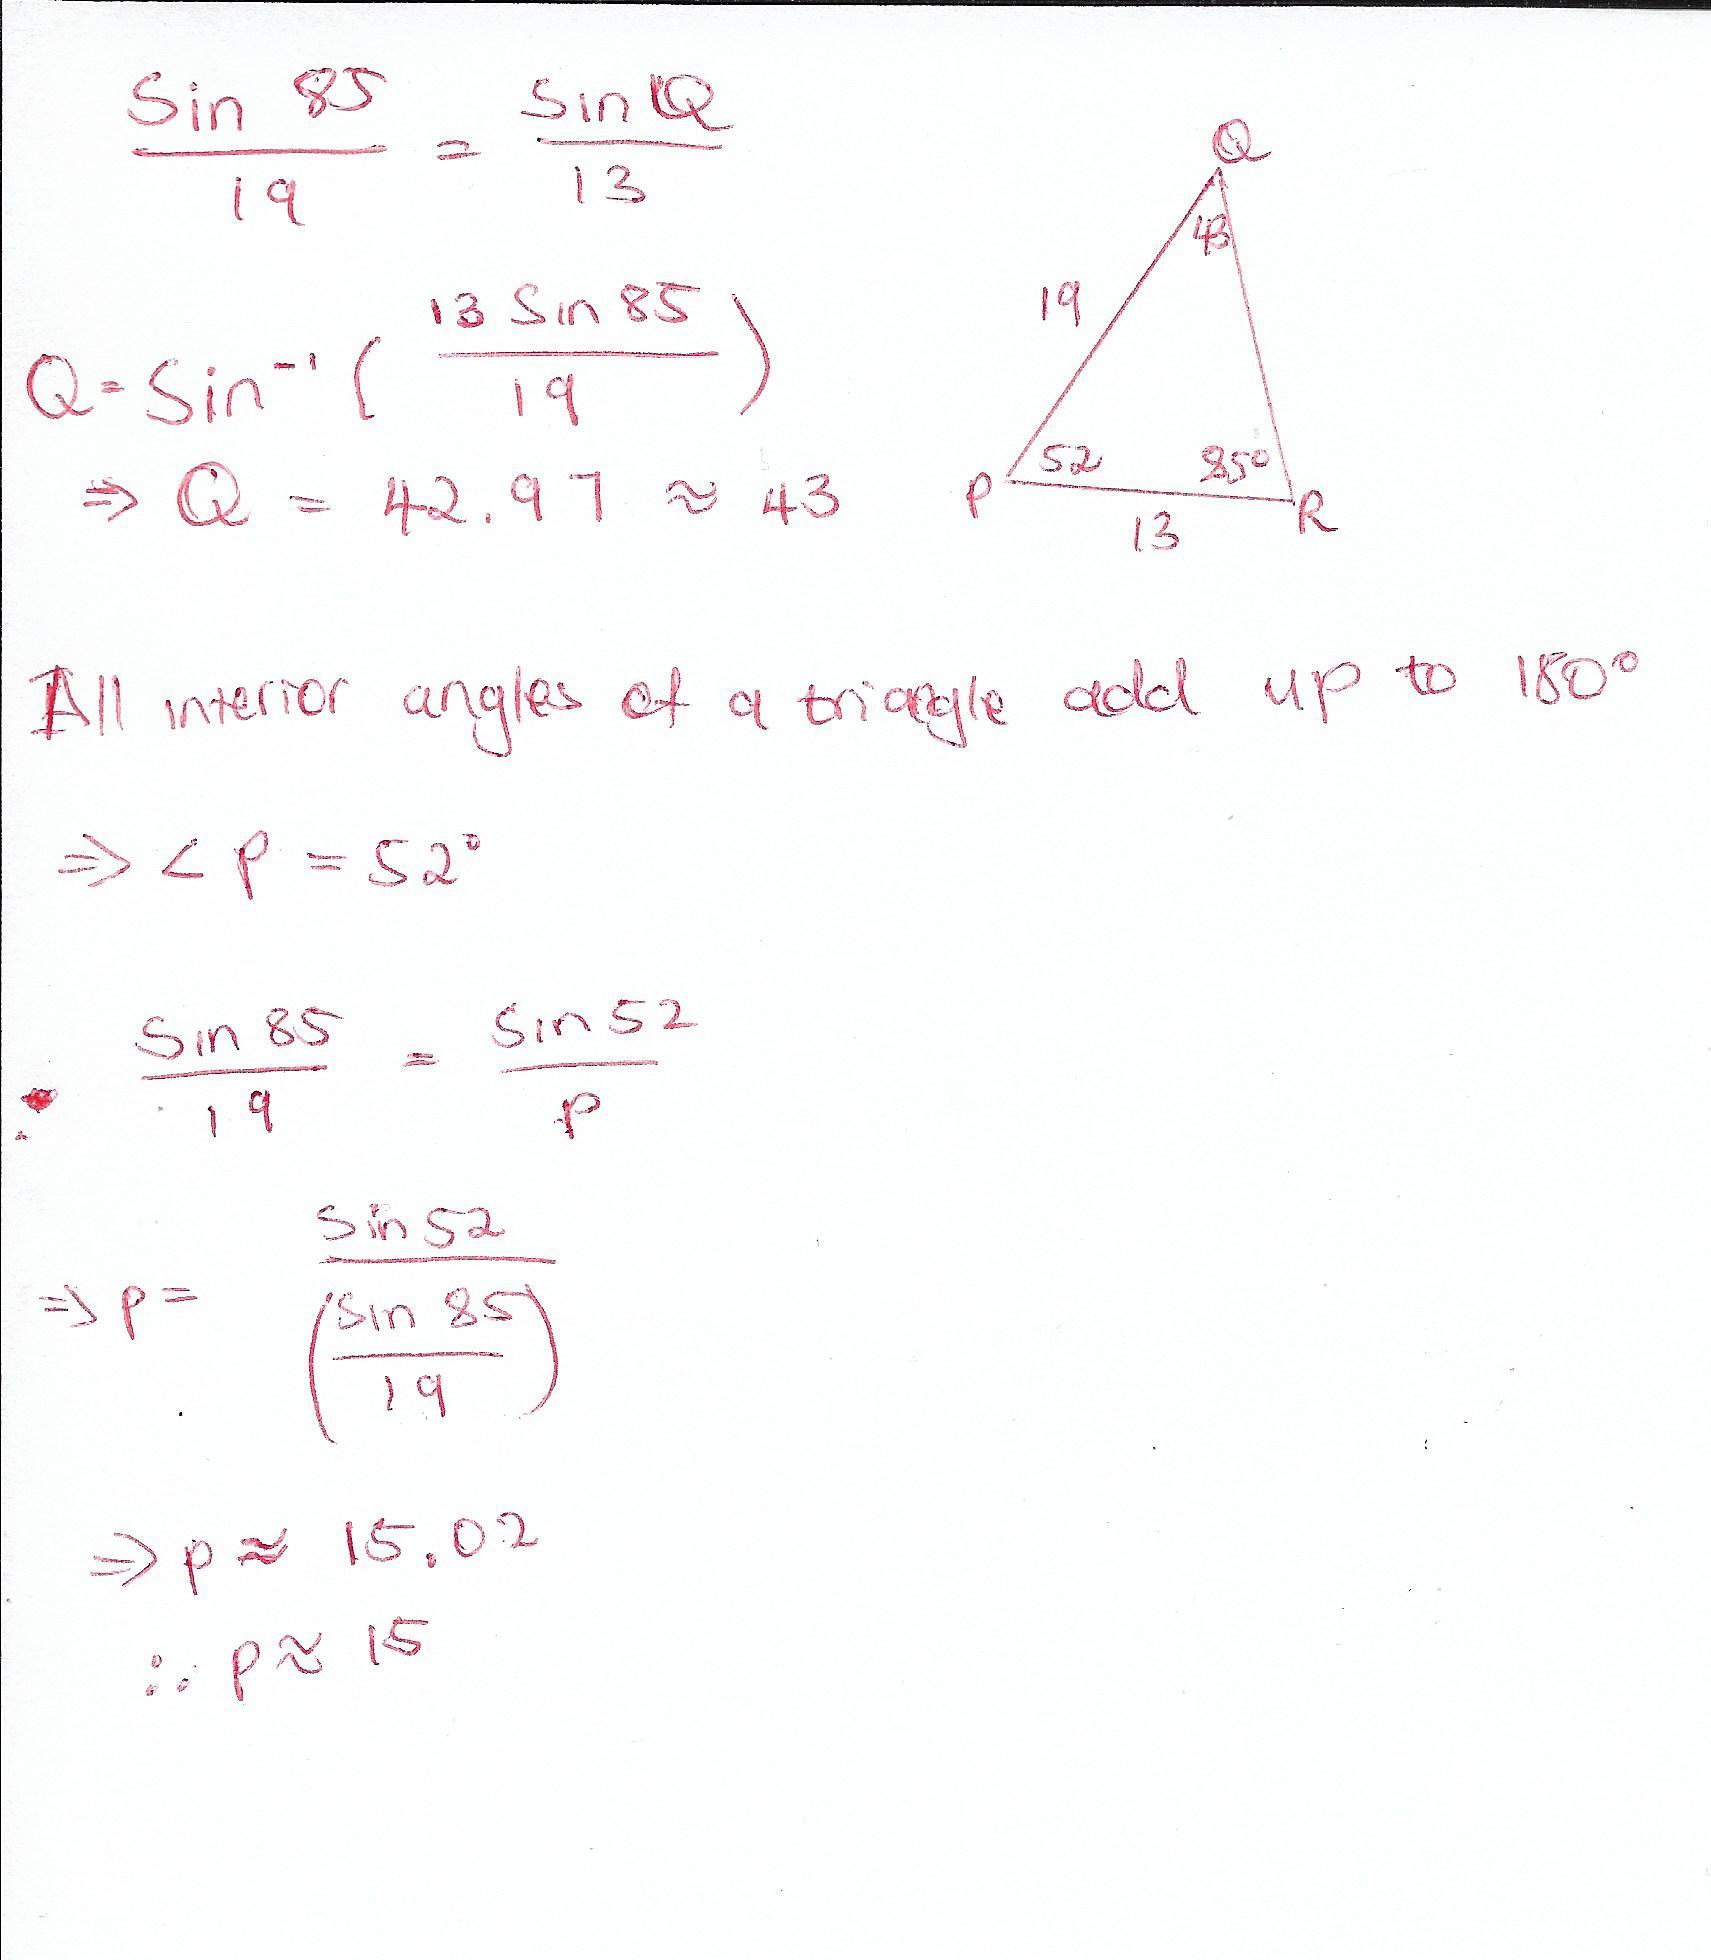 Sin 85 / 19 = Sin Q / 13
Q = Sin⁻¹ ( 13 Sin 85 / 19 )
⇒ Q = 42.97 ≈ 43
Q
43
19
52
85°
P
R
13
All interior angles of a triangle add up to 180°
⇒ < P = 52°
Sin 85 / 19 = Sin 52 / P
⇒ p = Sin 52 / ( Sin 85 / 19 )
⇒ p ≈ 15.02
∴ p ≈ 15